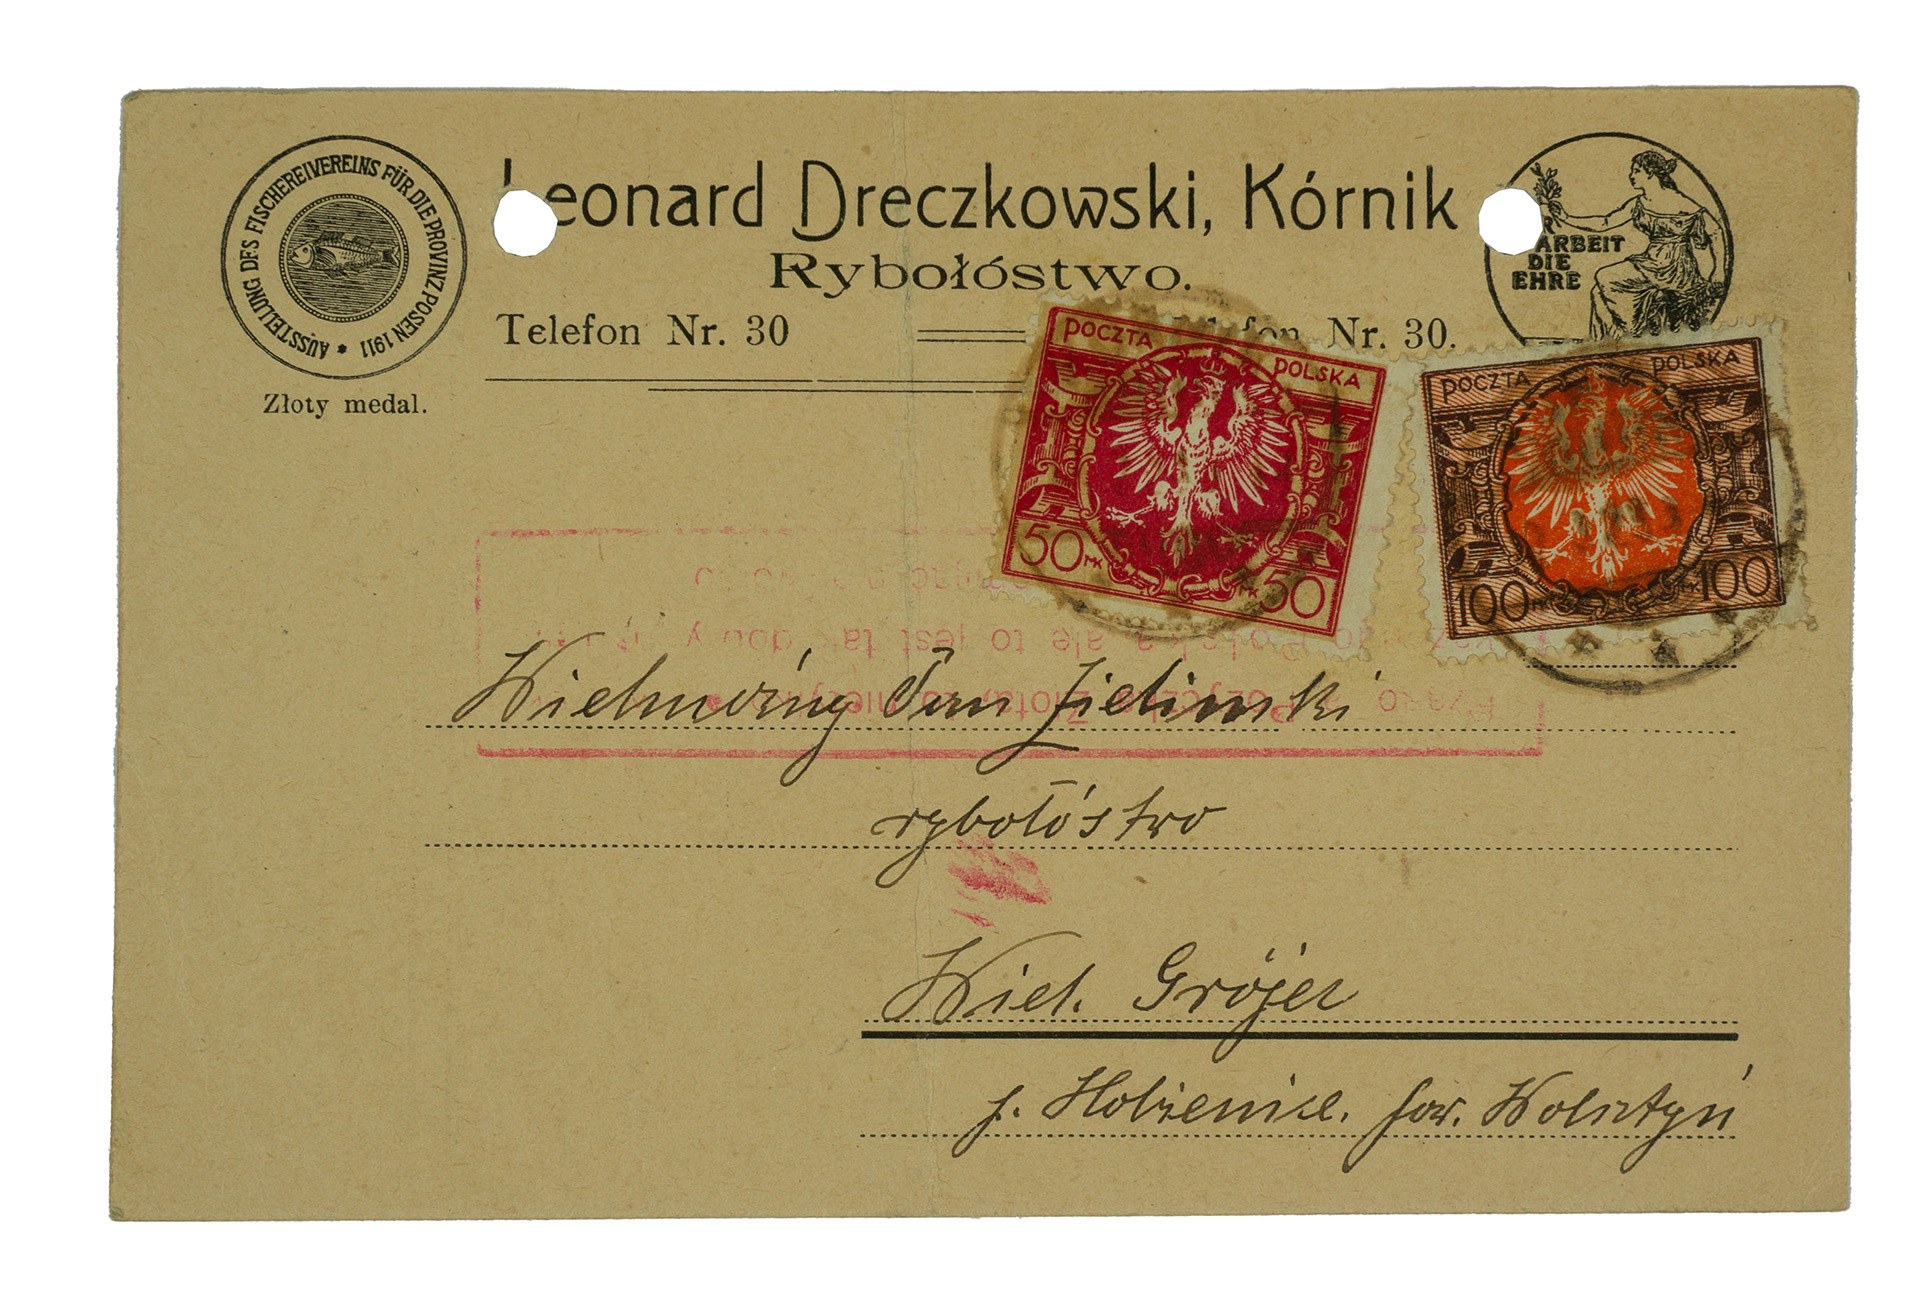 AUSSTELLUNG DES FISCHEREIVEREINS FÜR DIE PROVINZ POSEN 1911 *
Złoty medal.
Leonard Dreczkowski, Kórnik
Rybołóstwo.
Telefon Nr. 30
Nr. 30.
ARBEIT
DIE
EHRE
POCZTA POLSKA
50 MK MK 50
POCZTA POLSKA
100 100
ale to jest
Pożyczka Złota
Wielmożny Pan Zieliński
rybołóstwo
Wiel. Grójec
p. Kobienice. pow. Wolsztyń